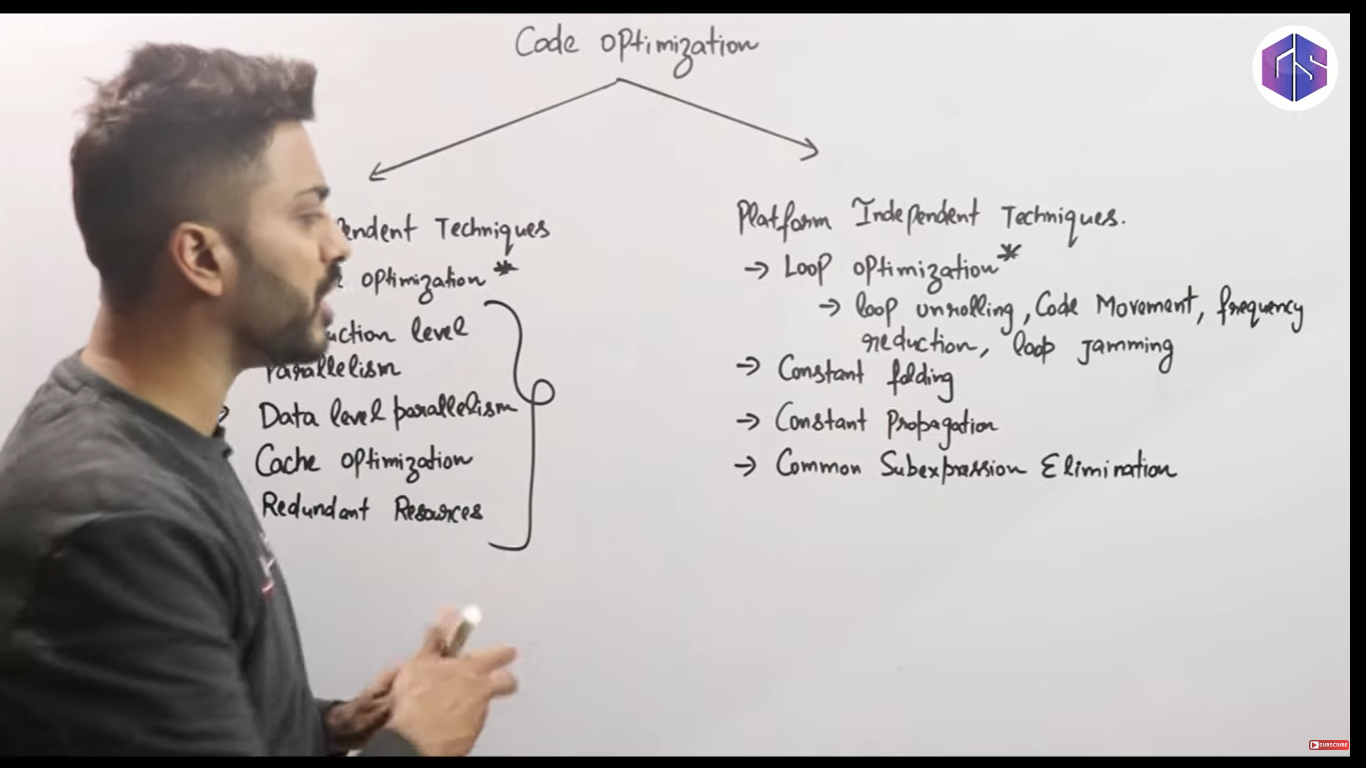 Code optimization
endent Techniques
optimization *
uction level
Parallelism
Data level parallelism
Cache optimization
Redundant Resources
Platform Independent Techniques.
→ Loop optimization *
→ loop unrolling, Code Movement, frequency
reduction, loop jamming
→ Constant folding
→ Constant Propagation
→ Common Subexpression Elimination
GS
SUBSCRIBE